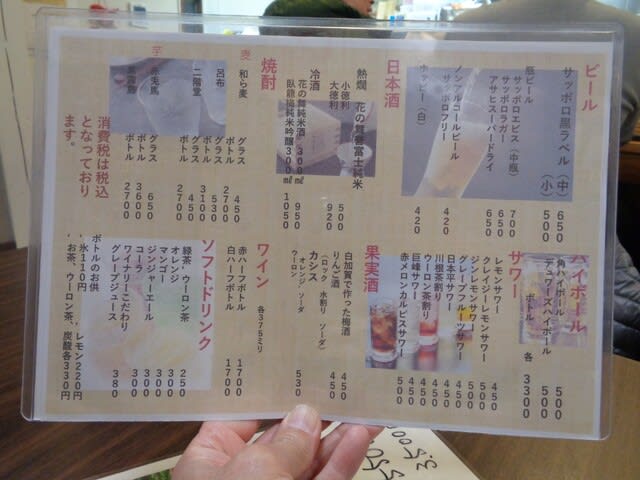 ビール
サッポロ黒ラベル（中） 650
（小） 500
瓶ビール
サッポロエビス（中瓶） 700
サッポロラガー 650
アサヒスーパードライ 650
ノンアルコールビール
サッポロフリー 420
ホッピー（白） 420
日本酒
熱燗 花の舞富士純米
小徳利 500
大徳利 920
冷酒
花の舞純米酒300㎖ 950
臥龍梅純米吟醸300㎖ 1050
焼酎
麦 和ら麦 グラス 450
ボトル 2700
呂布 グラス 530
ボトル 3100
二階堂 グラス 450
ボトル 2700
芋 赤兎馬 グラス 650
ボトル 3600
ボトル 2700
消費税は税込
となっており
ます。
ハイボール
角ハイボール 500
デュワーズハイボール 500
ボトル 各3300
サワー
レモンサワー 450
クレイジーレモンサワー 500
シンレモンサワー 500
グレープフルーツサワー 500
日本平サワー 450
川根茶割り 450
ウーロン茶割り 450
巨峰サワー 450
赤メロンカルピスサワー 500
果実酒
白加賀で作った梅酒 450
りんご酒 450
（ロック 水割り ソーダ）
カシス 530
オレンジ ソーダ
ウーロン
ワイン 各375ミリ
赤ハーフボトル 1700
白ハーフボトル 1700
ソフトドリンク
緑茶、ウーロン茶 250
オレンジ 300
マンゴー 300
コーラ 300
ジンジャーエール 300
ワイナリーこだわり
グレープジュース 380
ボトルのお供
氷110円 レモン220円
お茶、ウーロン茶、炭酸各330円